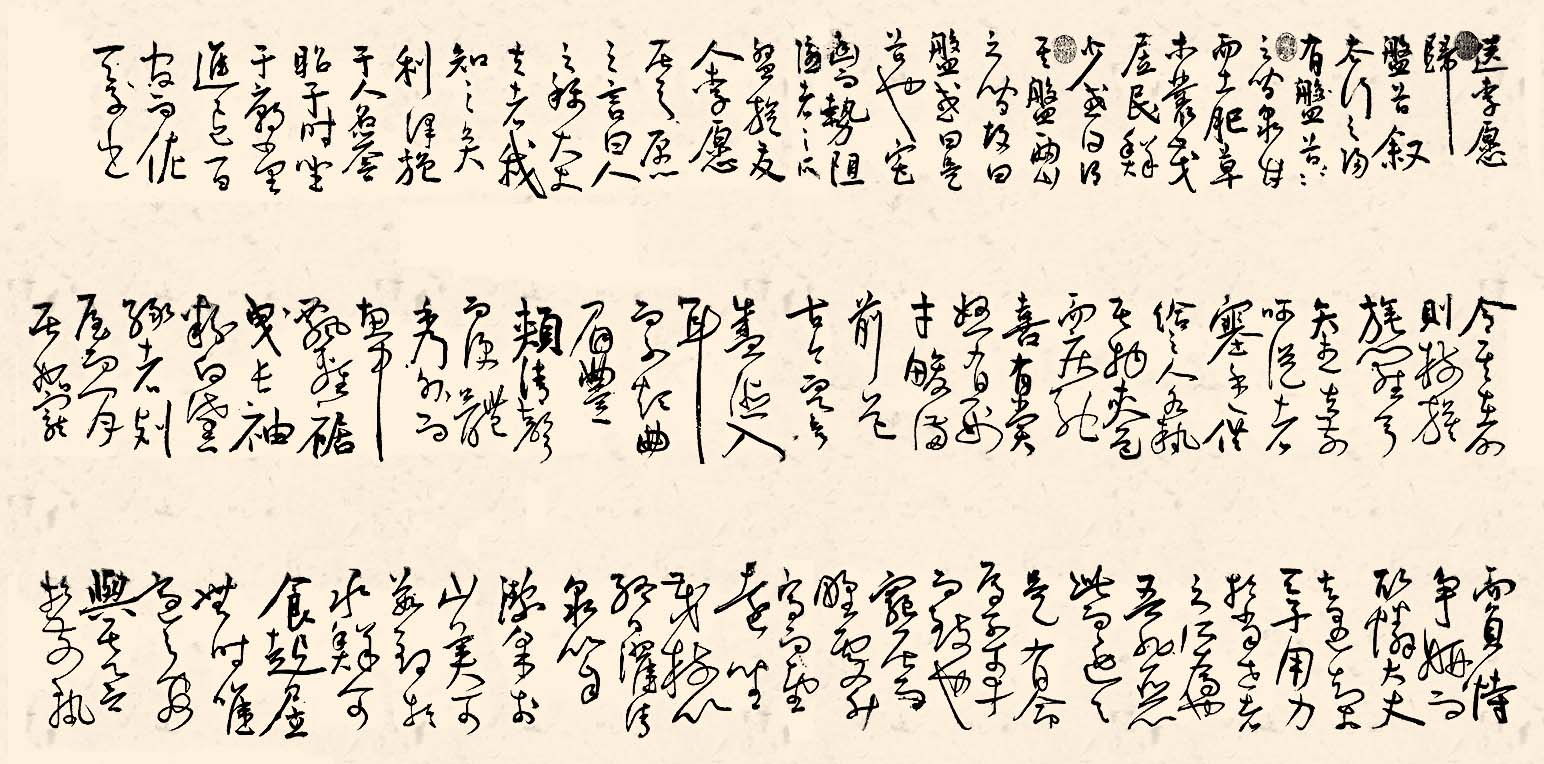 送李愿
歸
盤谷叙
太行之陽
有盤谷〻〻
之間泉甘
而土肥草
木叢茂
居民鮮
少或曰謂
其盤兩山
之間故曰
盤或曰是
谷也宅
幽而勢阻
隱者之所
盤旋友
人李愿
居之愿
之言曰人
之稱大丈
夫者我
知之矣
利澤施
于人名譽
昭于時坐
于廟堂
進退百
官而佐
天子出
令其在外
則樹旗
旄羅弓
矢武夫前
呵從者
塞途供
給之人各執
其物夾道
而疾馳
喜有賞
怒有刑
才畯滿
前道
古今而譽
盛德入
耳
而不煩曲
眉豐
頰清聲
而便體
秀外而
惠中
飄輕裾
曳長袖
粉白黛
綠者列
屋而閒
居妒寵
而負恃
爭妍而
取憐大丈
夫遇知
天子用力
於當世者
之所為也
吾非惡
此而逃之
是有命
焉不可幸
而致也
窮居而
野處升
高而望
遠坐
茂樹以
終日濯清
泉以自
潔采於
山美可
茹釣於
水鮮可
食起居
無時惟
適之安
與其有譽
於前孰